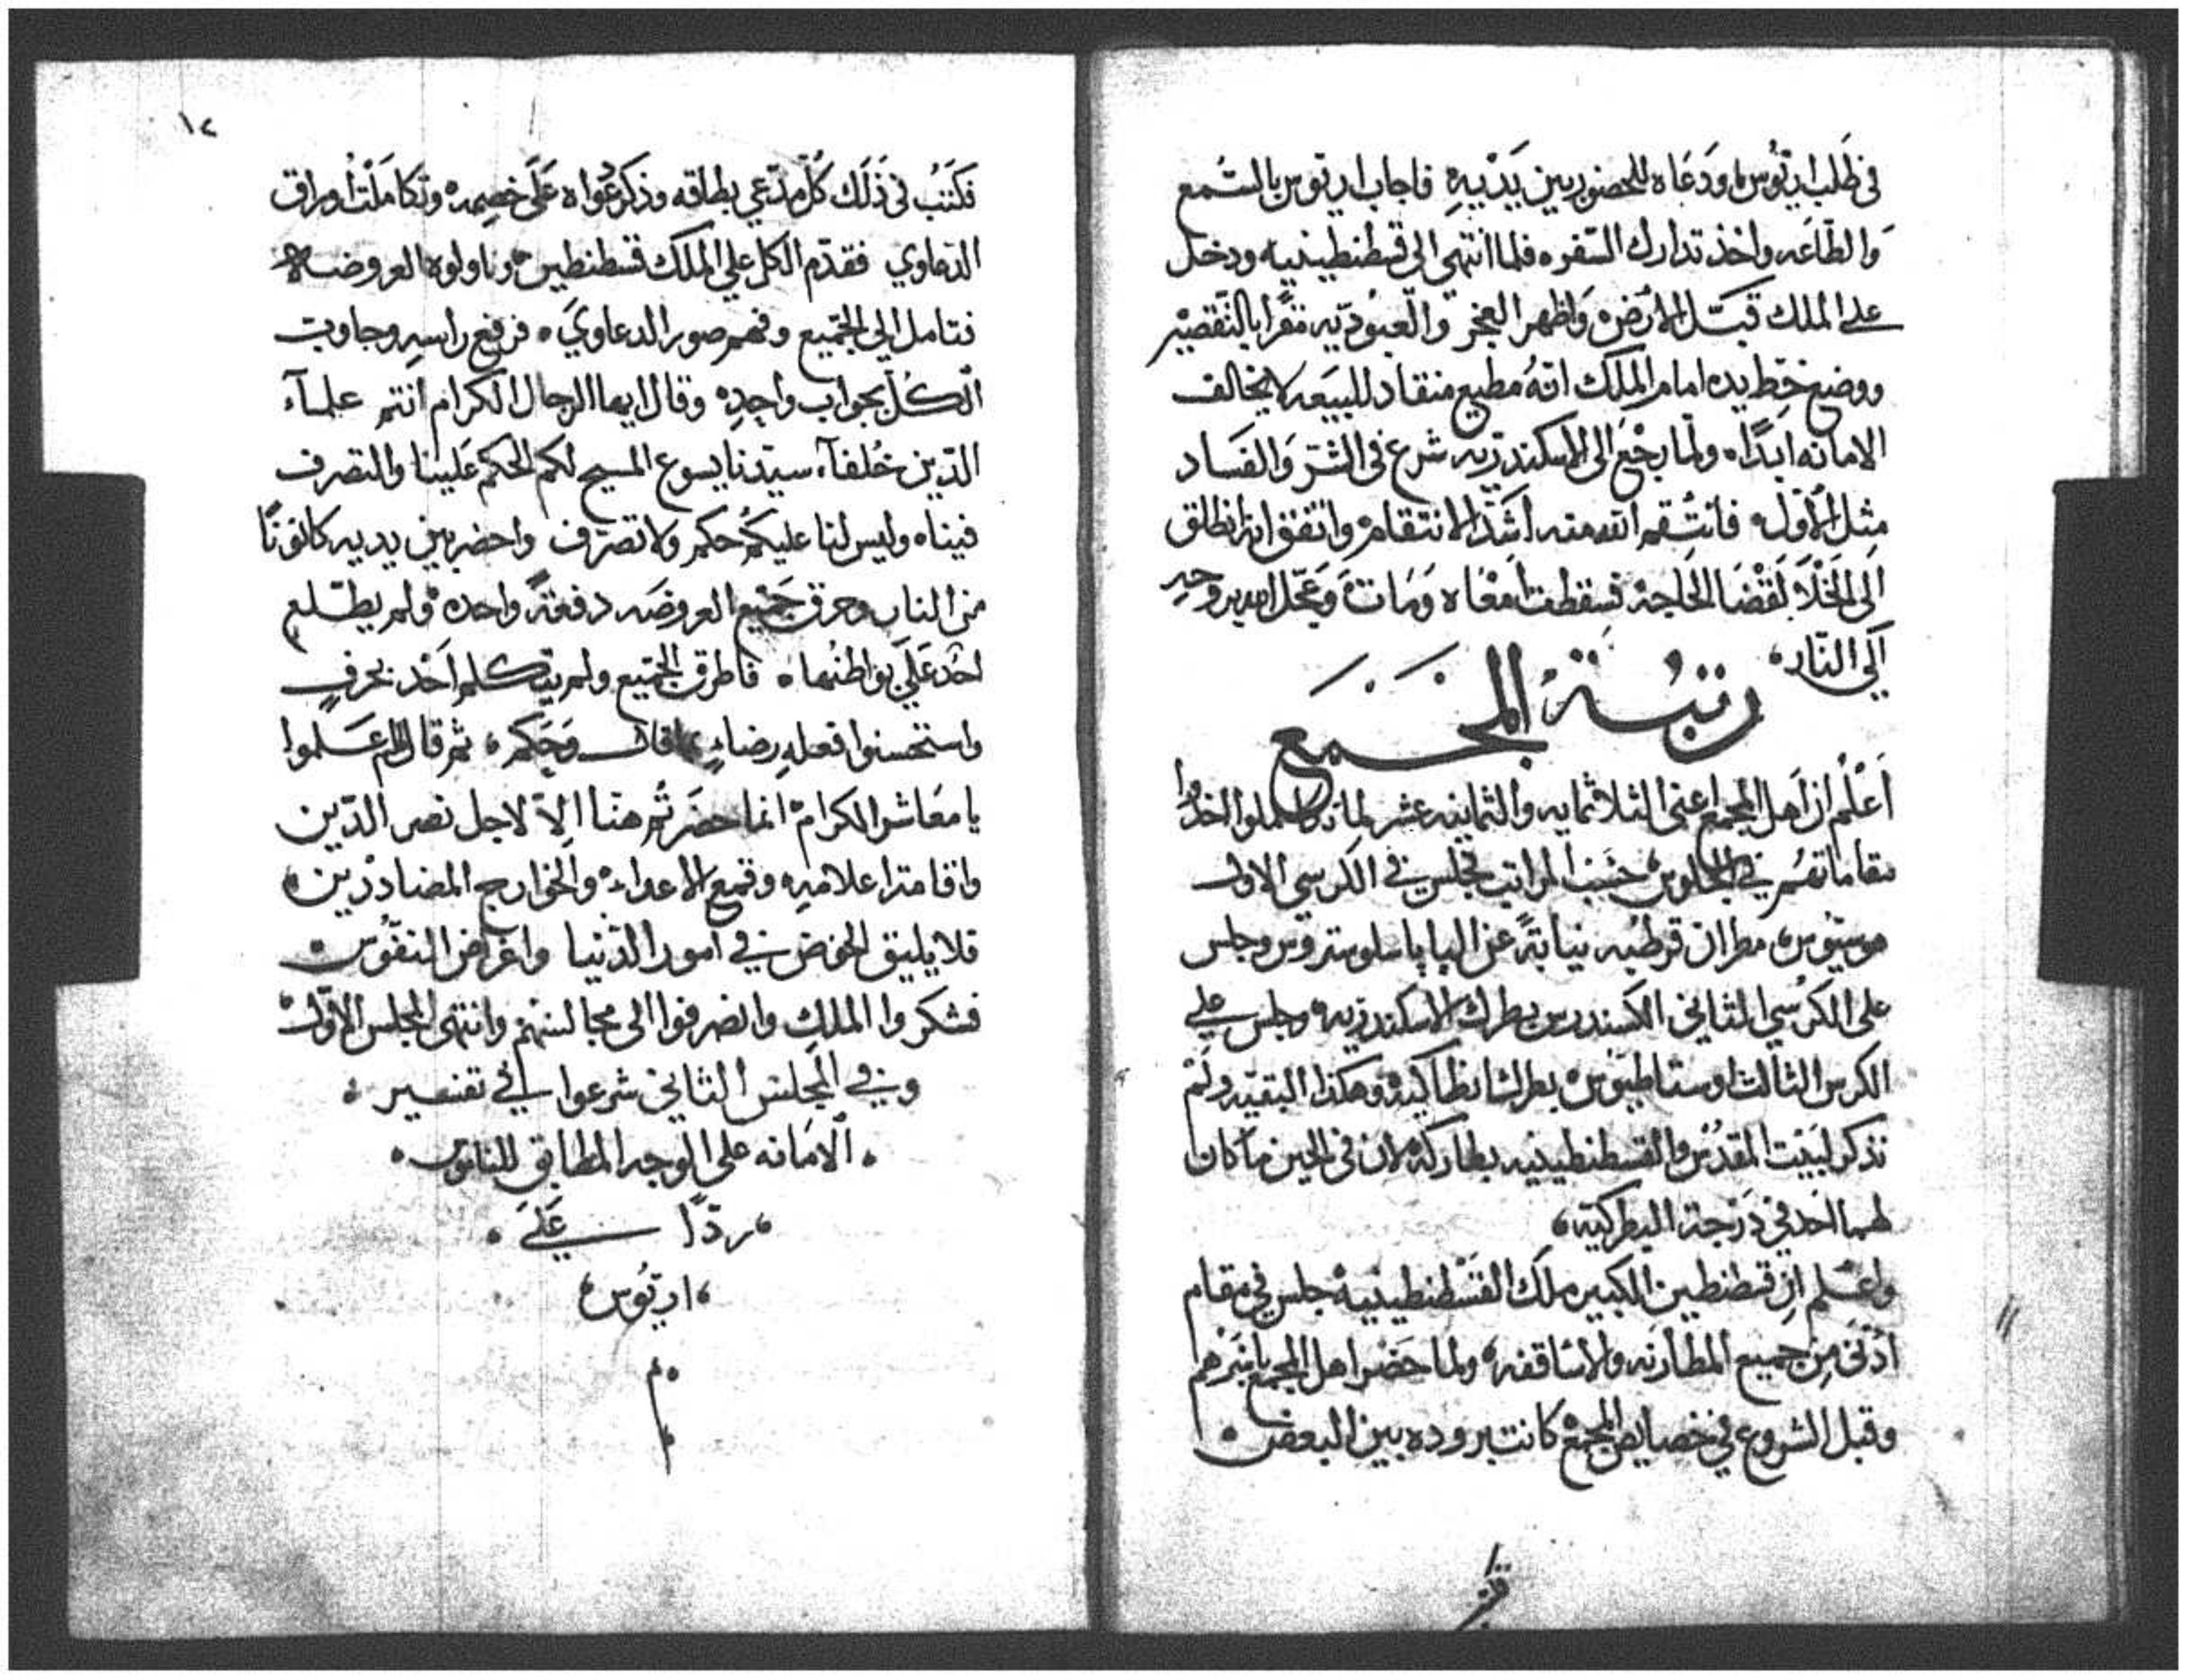 في طلب اريوس، ودعاه للحضور بين يديه فاجاب اريوس بالسمع
والطاعه واخذ تدارك السفره فلما انتهى الى قسطنطينيه ودخل
على الملك قبّل الارض واظهر العجز والعبوديه مقرا بالتقصير
ووضع خط يده امام الملك انه مطيع منقاد للبيعه لا يخالف
الامانه ابدًا، ولما رجع الى الاسكندريه شرع في الشر والفساد
مثل الاول، فانتقم الله منه اشد الانتقام واتفق انه انطلق
الى الخلا لقضا الحاجه فسقطت امعاه ومات وعجل الله بروحه
الى النار،
رتبة المجمع
اعلم ان اهل المجمع اعني الثلاثمايه والثمانيه عشر لما تكاملوا اتخذوا
مقاماتهم في الجلوس حسب المراتب فجلس في الكرسي الاول
هوسيوس، مطران قرطبه نيابةً عن البابا سلوستروس وجلس
على الكرسي الثاني الكسندرس بطرك الاسكندريه وجلس على
الكرسي الثالث اوستاطيوس بطرك انطاكيه وهكذا البقيه ولم
نذكر لبيت المقدس والقسطنطينيه بطاركه لان في الحين ما كان
لهما احد في درجة البطركيه،
واعلم ان قسطنطين الكبير ملك القسطنطينيه جلس في مقام
ادنى من جميع المطارنه والاساقفه، ولما حضر اهل المجمع باسرهم
وقبل الشروع في خصايص المجمع كانت بروده بين البعض
١٢
فكتب في ذلك كل مدعي بطاقه وذكر دعواه على خصمه وتكاملت اوراق
الدعاوي فقدم الكل على الملك قسطنطين وناولوه العروضه
فتامل الى الجميع وفهم صور الدعاوي، فرفع راسه وجاوب
الكل بجواب واحد وقال ايها الرجال الكرام انتم علمآء
الدين خلفآء سيدنا يسوع المسيح لكم الحكم علينا والتصرف
فيناه وليس لنا عليكم حكم ولا تصرف واحضر بين يديه كانونًا
من النار وحرق جميع العروضه دفعةً واحده ولم يطلع
احد على بواطنها، فاطرق الجميع ولم يتكلم احد بحرفٍ
واستحسنوا فعله رضاءٍ قال وحكم، ثم قال لهم اعلموا
يا معاشر الكرام انما حضرتم هنا الا لاجل نصر الدين
واقامة اعلامه وقمع الاعداء والخوارج المضاددين
فلا يليق الخوض في امور الدنيا واغراض النفوس
فشكروا الملك وانصرفوا الى مجالسهم وانتهى المجلس الاول
وفي المجلس الثاني شرعوا في تفسير
الامانه على الوجه المطابق للناموس
ردًا على
اريوس
م